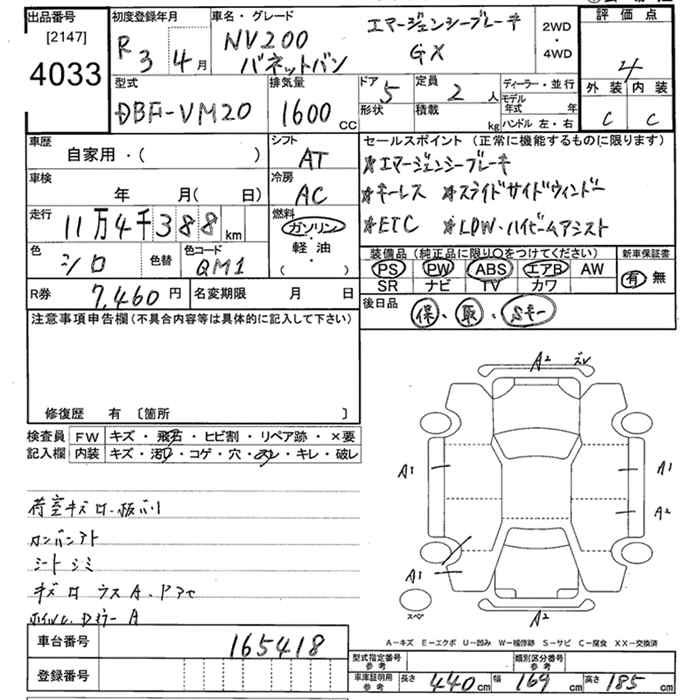 出品番号 初度登録年月 車名・グレード 評価点
[2147]
4033
R3 4月
NV200 エマージェンシーブレーキ
バネットバン GX
2WD
・
4WD
4
型式 排気量 ドア 定員 ディーラー・並行 外装 内装
DBF-VM20 1600 CC 5 2 人
形状 積載 kg モデル年式 年
ハンドル 左・右
C C
車歴 シフト セールスポイント (正常に機能するものに限ります)
自家用・( ) AT
★エマージェンシーブレーキ
車検 冷房
年 月( 日) AC
★キーレス ★スライドサイドウィンドー
走行 燃料
11万4千388 km ガソリン
★ETC ★LDW・ハイビームアシスト
軽・油
・
( )
色 色替 色コード
シロ QM1
装備品 (純正品に限り〇をつけてください) 新車保証書
PS PW ABS エアB AW
SR ナビ TV カワ
有 無
R券 7,460 円 名変期限 月 日
後日品 保、取、Sキー
注意事項申告欄 (不具合内容等は具体的に記入して下さい)
修復歴 有 [箇所 ]
検査員 FW キズ・飛石・ヒビ割・リペア跡・×要
記入欄 内装 キズ・汚レ・コゲ・穴・スレ・キレ・破レ
荷室キズ
シートシミ
A2
A1 A1
A2
A1
A2
スペア
A-キズ E-エクボ U-凹み W-補修跡 S-サビ C-腐食 XX-交換済
車台番号 165418
登録番号
型式指定番号 参考 類別区分番号 参考
車庫証明用 参考 長さ 440 cm 幅 169 cm 高さ 185 cm